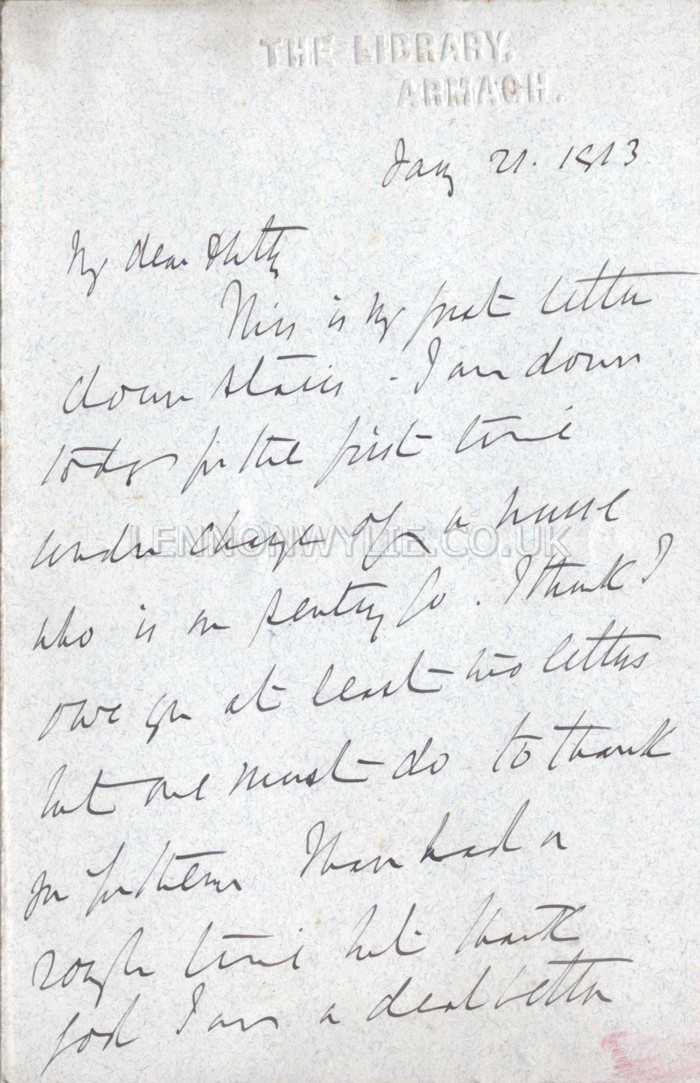 THE LIBRARY,
ARMAGH.
Jany 21. 1913
My dear Hetty
This is my first letter
down stairs - I am down
today for the first time
under charge of a nurse
who is on sentry go. I think I
owe you at least two letters
but one must do to thank
you for them I have had a
rough time but thank
God I am a deal better
LENNONWYLIE.CO.UK